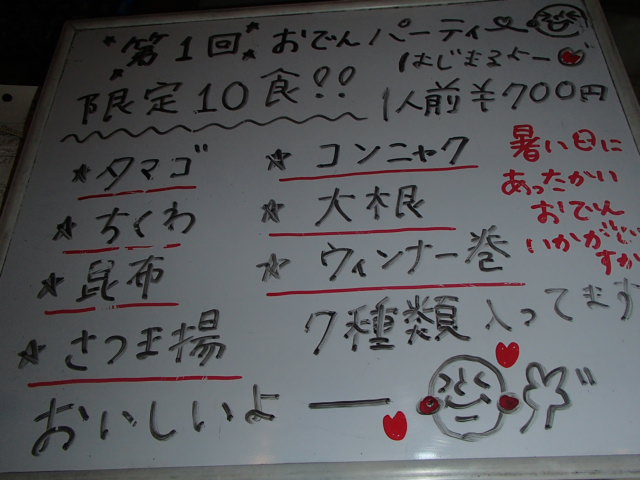 *第1回* おでんパーティー
はじまるよー
限定10食!! 1人前¥700円
☆タマゴ
☆ちくわ
☆昆布
☆さつま揚
☆コンニャク
☆大根
☆ウィンナー巻
7種類入ってます
暑い日に
あったかい
おでん
いかがで
すか
おいしいよー